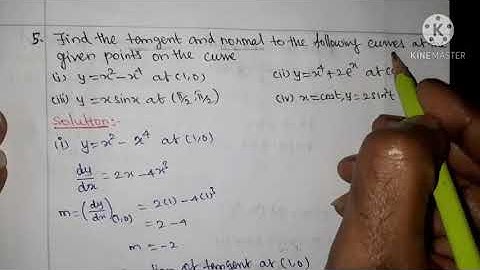 5. Find the tangent and normal to the following curves at the
given points on the curve
(i) y=x²-x⁴ at (1,0) (ii) y=x⁴+2eˣ at
(iii) y=x sinx at (π/2,π/2) (iv) x=cost, y=2sin²t
Solution:-
(i) y=x²-x⁴ at (1,0)
dy/dx = 2x-4x³
m=(dy/dx)(1,0) = 2(1)-4(1)³
= 2-4
m = -2
of tangent at (1,0)
MADE WITH
KINEMASTER